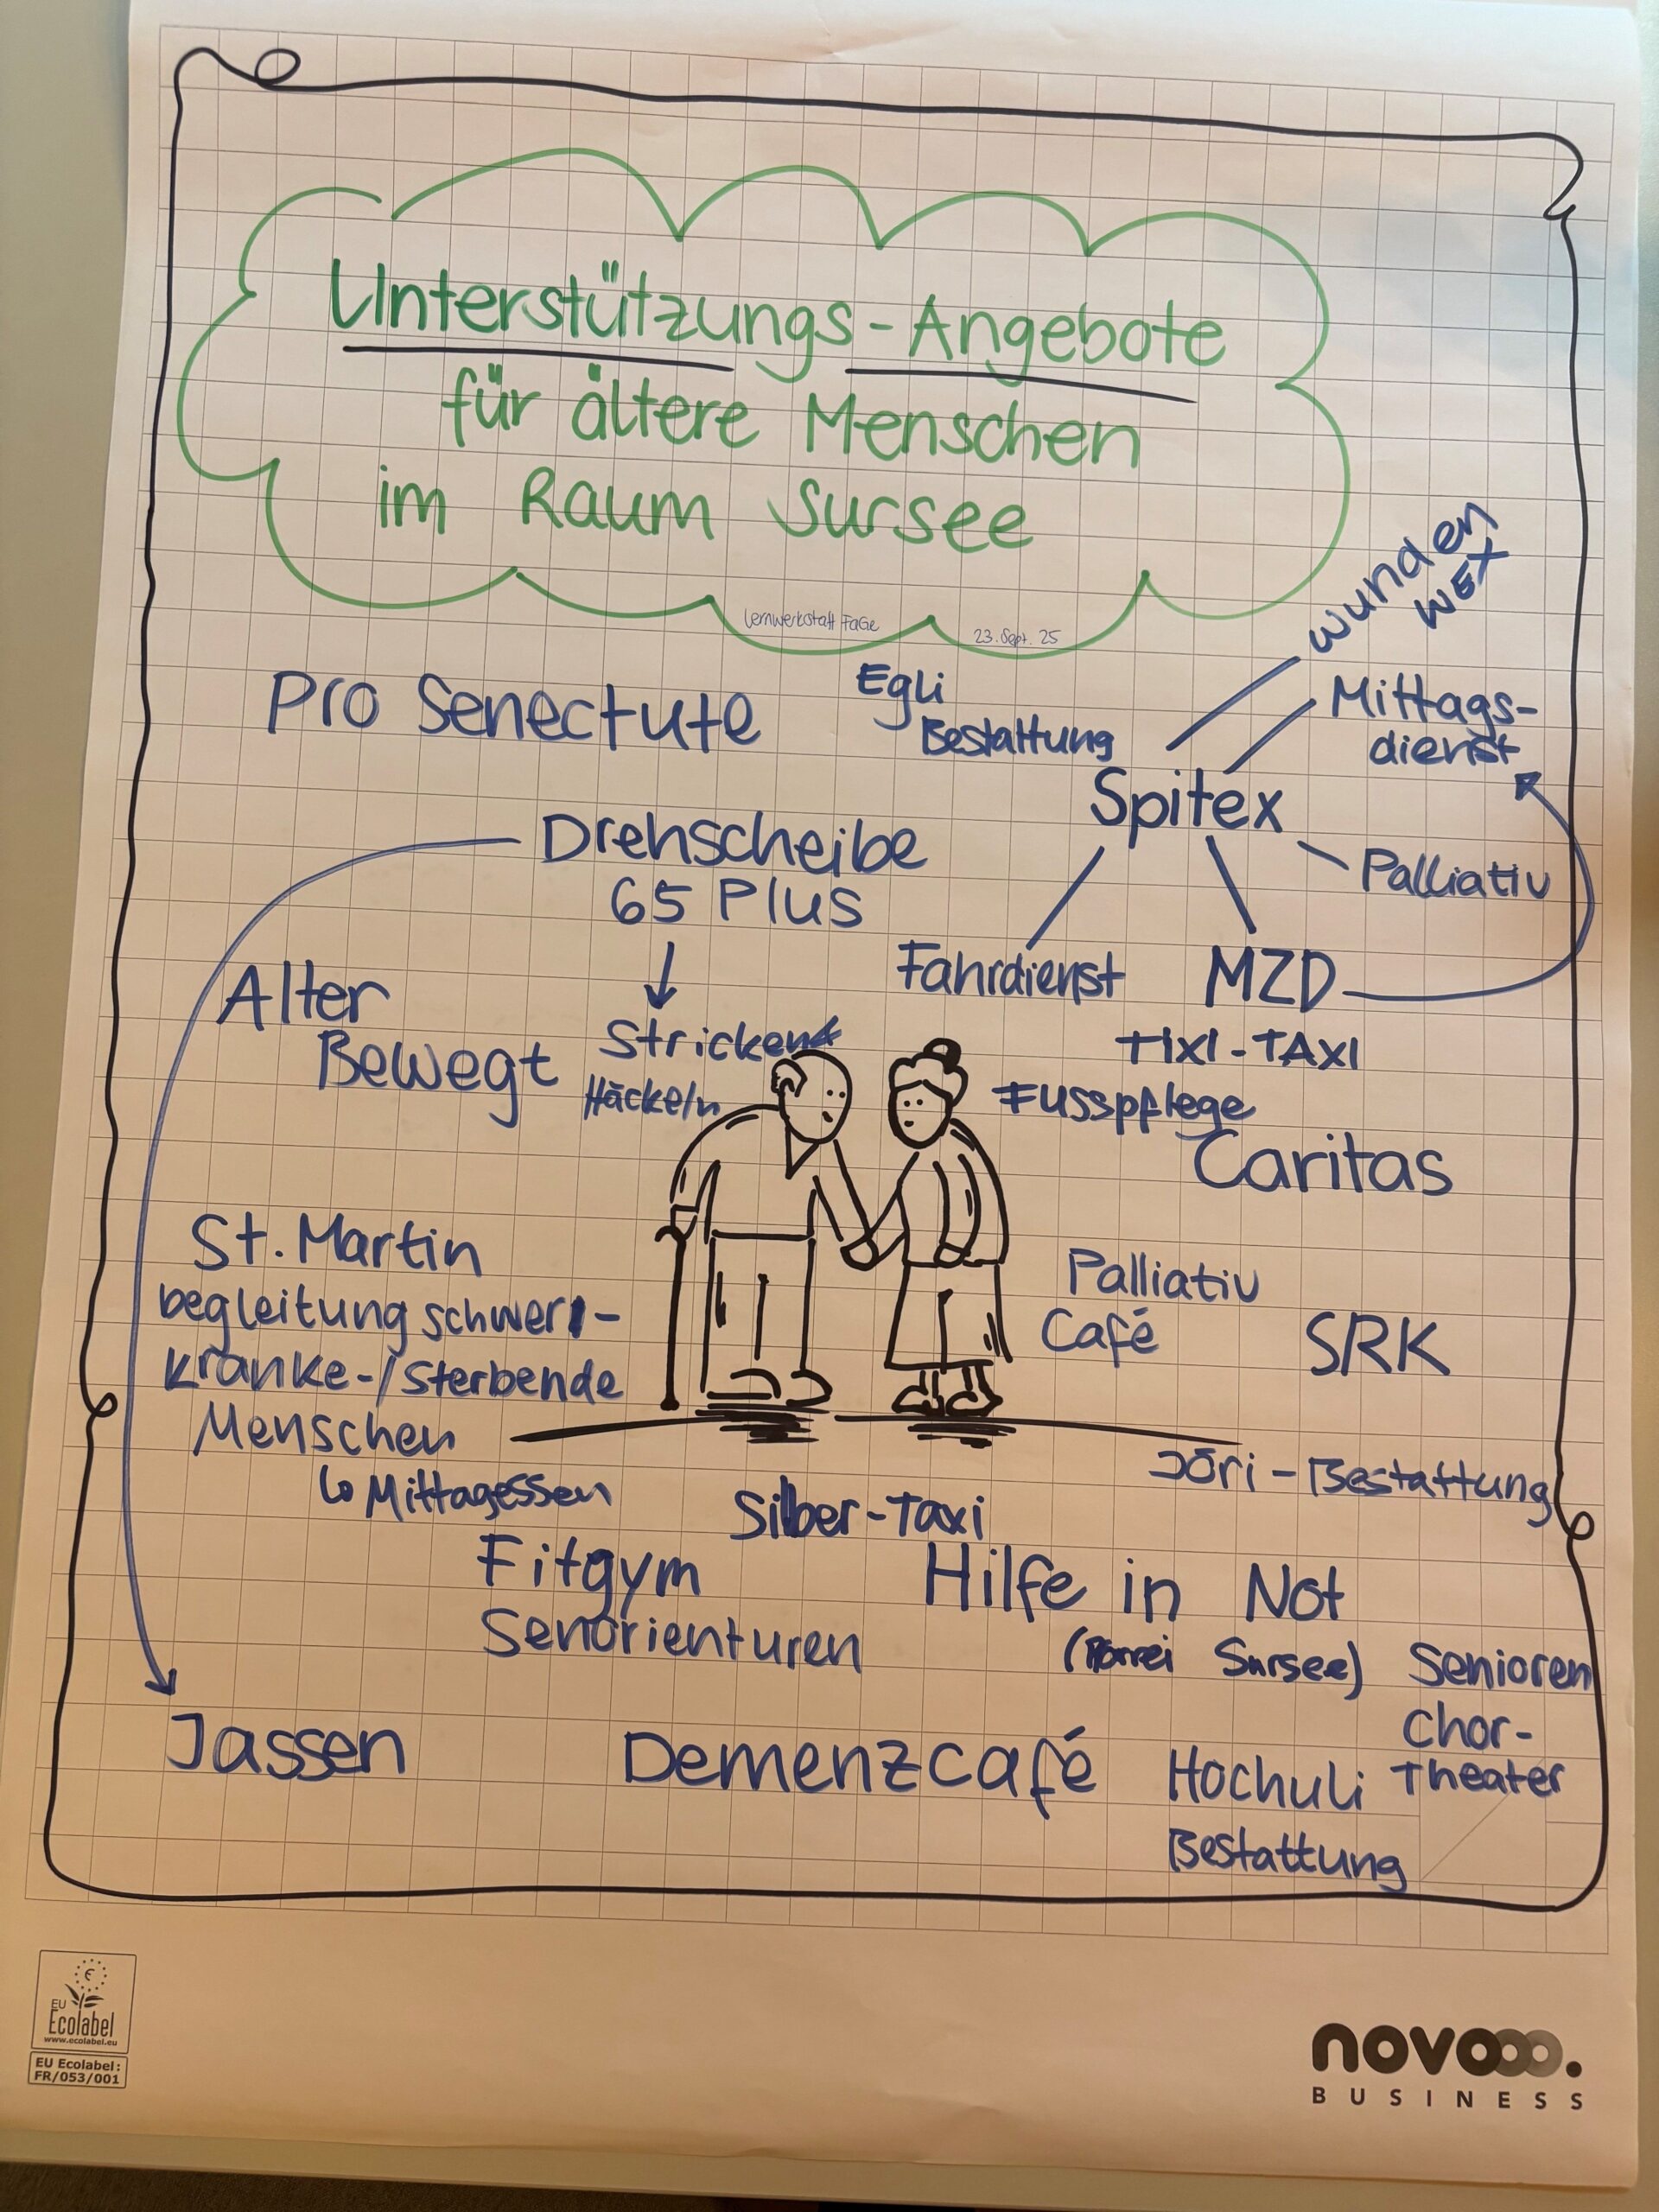 Unterstützungs-Angebote
für ältere Menschen
im Raum Sursee
Lernwerkstatt FaGe 23. Sept. 25
Wunden
WEX
Pro Senectute
Egli
Bestattung
Mittags-
dienst
Spitex
Palliativ
Drehscheibe
65 Plus
Fahrdienst MZD
Alter
Bewegt
Stricken &
Häckeln
TIXI-TAXI
Fusspflege
Caritas
St. Martin
begleitung schwer-
Kranke-/Sterbende
Menschen
↳ Mittagessen
Palliativ
Café
SRK
Jöri-Bestattung
Silber-Taxi
Fitgym
Senorienturen
Hilfe in Not
(Pfarrei Sursee)
Senioren
Chor-
Theater
Jassen
Demenzcafé
Hochuli
Bestattung
EU
Ecolabel
www.ecolabel.eu
EU Ecolabel:
FR/053/001
novooo.
BUSINESS